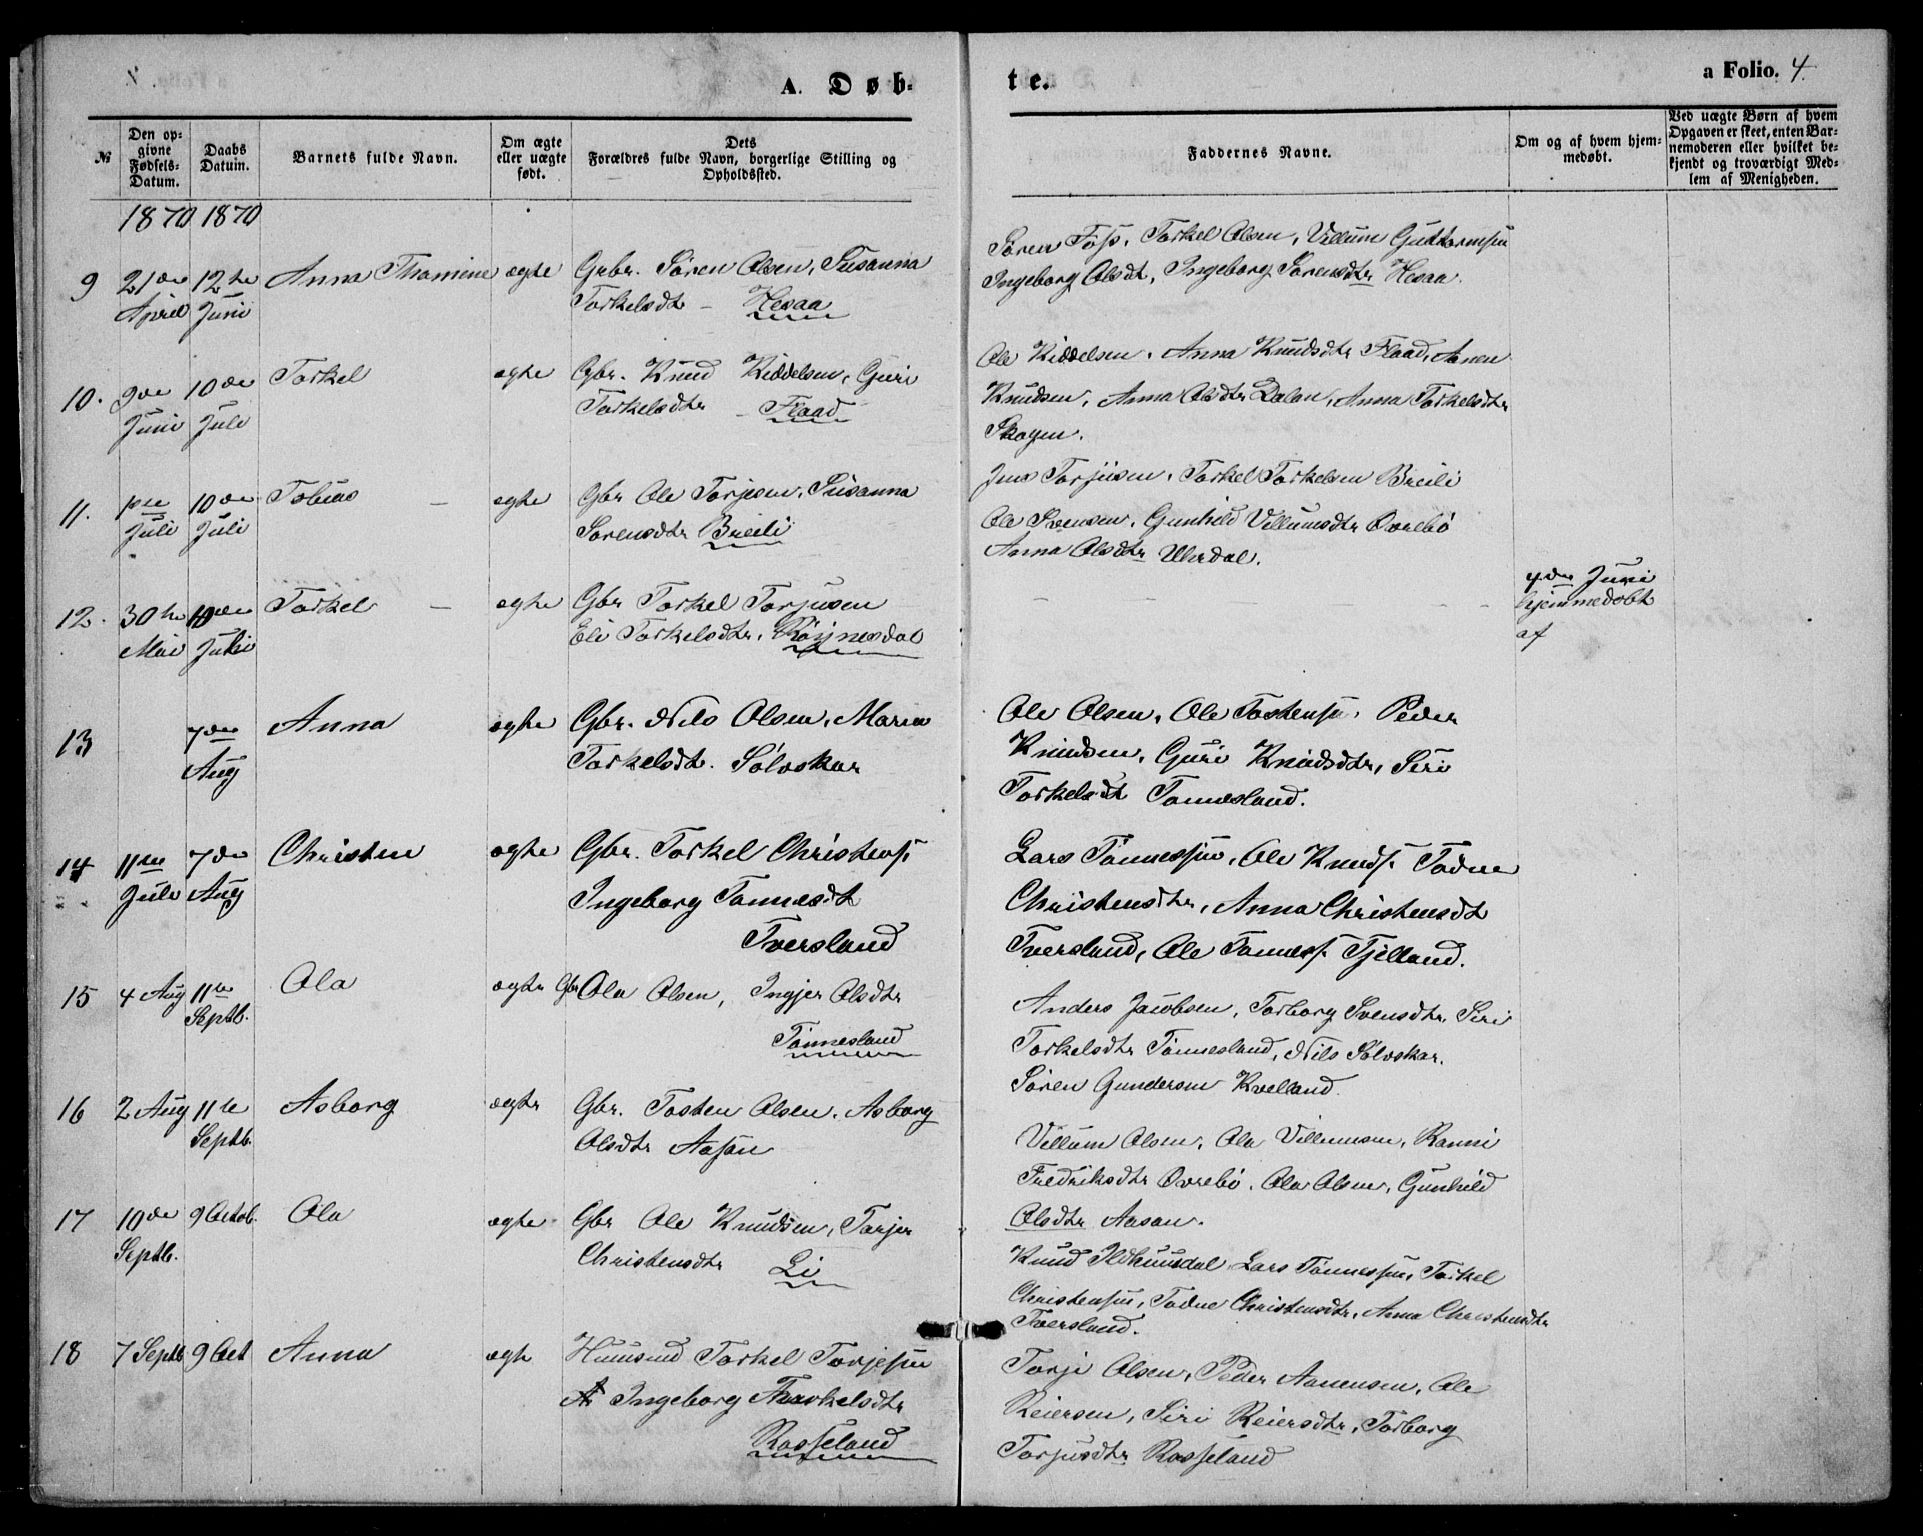 A. Døb-
te.
a Folio. 4.
№
Den opgivne Fødsels-Datum.
Daabs Datum.
Barnets fulde Navn.
Om ægte eller uægte født.
Dets Forældres fulde Navn, borgerlige Stilling og Opholdssted.
Faddernes Navne.
Om og af hvem hjemmedøbt.
Ved uægte Børn af hvem Opgaven er skeet, enten Barnemoderen eller hvilket bekjendt og troværdigt Medlem af Menigheden.
1870 1870
9 21de 12te Anna Thomine ægte Grbr. Søren Olsen, Susanna
April Juni Torkelsdt – Hesaa
Søren Foss, Torkel Olsen, Villum Guttormsen
Ingeborg Olsdt, Ingeborg Sørensdtr Hesaa.
10. 9de 10de Torkel ægte Gbr. Knud Kiddelsen, Guri
Juni Juli Torkelsdtr – Flaad
Ole Kiddelsen, Anna Knudsdtr Flaad, Aanen
Knudsen, Anna Olsdtr Dalen, Anna Torkelsdtr
Skogen.
11. 1ste 10de Tobias – ægte Gbr Ole Torjesen, Susanna
Juli Juli Sørensdtr Breili
Jens Torjusen, Torkel Torkelsen Breili
Ole Svensen, Gunhild Villumsdtr Øvrebø
Anna Olsdtr Uhrdal.
12. 30te 10de Torkel – ægte Gbr Torkel Torjusen
Mai Juli Eli Torkelsdtr, Røinesdal
4de Juni
hjemmedøbt
af
13 7de Anna ægte Gbr. Nils Olsen, Maren
Aug Torkelsdt. Sølvskar
Ole Olsen, Ole Tostensen, Peder
Knudsen, Guri Knudsdtr, Siri
Torkelsdt Tønnesland.
14 11te 7de Christen ægte Gbr. Torkel Christens.
Juli Aug Ingeborg Tønnesdt
Tversland
Lars Tønnessen, Ole Knuds. Todne
Christensdtr, Anna Christensdt
Tversland, Ole Tønness. Tjelland.
15 4 Aug 11te Ola ægte Gbr Ola Olsen, Ingjer Olsdtr
Septb. Tønnesland
Anders Jacobsen, Torborg Svensdtr, Siri
Torkelsdtr Tønnesland, Nils Sølvskar.
Søren Gundersen Kvelland.
16 2 Aug 11te Asborg ægte Gbr. Tosten Olsen, Asborg
Septb. Olsdtr Aasan
Villum Olsen, Ola Villumsen, Ranni
Fredriksdtr Øvrebø, Ola Olsen, Gunhild
Olsdtr Aasan.
17 10de 9 Octob. Ola ægte Gbr Ole Knudsen, Torjer
Septb. Christensdtr Li
Knud Ildhuusdal Lars Tønnessen, Torkel
Christensen, Todne Christensdtr, Anna Christensdtr
Tversland.
18 7 Septb 9 Oct Anna ægte Huusmd Torkel Torjesen
Ingeborg Torkelsdtr
Rosseland
Torje Olsen, Peder Aanensen, Ole
Reiersen, Siri Reiersdtr, Torborg
Torjusdtr Rosseland